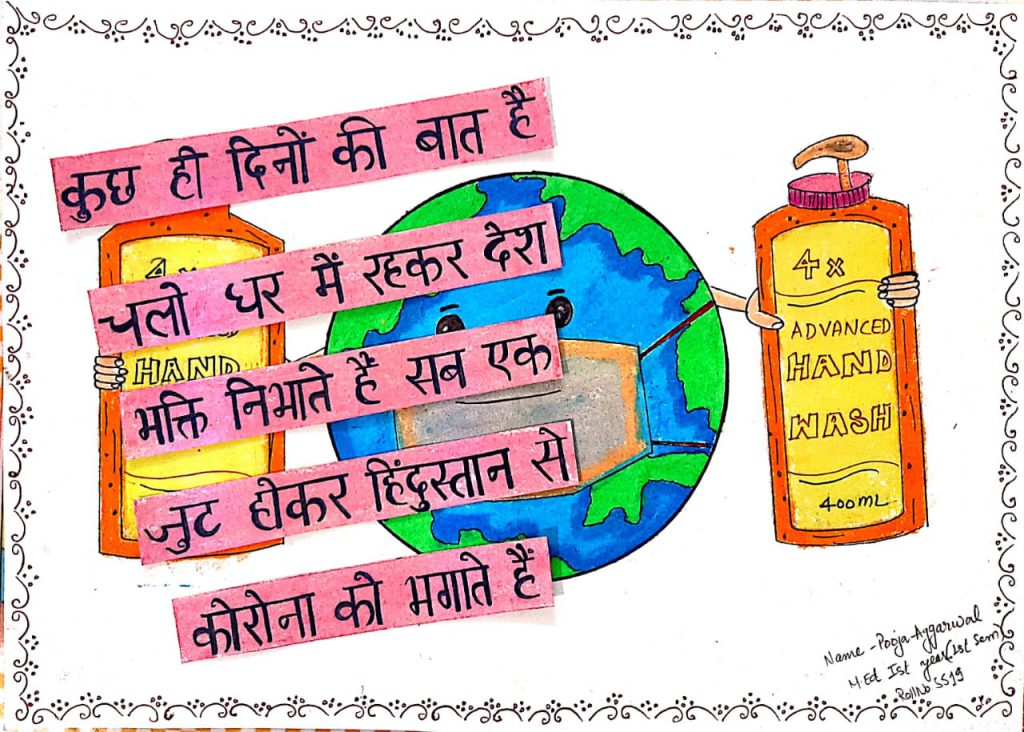 कुछ ही दिनों की बात है
चलो घर में रहकर देश
भक्ति निभाते हैं सब एक
जुट होकर हिंदुस्तान से
कोरोना को भगाते हैं
4x
HAND
4x
ADVANCED
HAND
WASH
400ML
Name - Pooja Aggarwal
M.Ed Ist year(1st Sem)
RollNo 5519